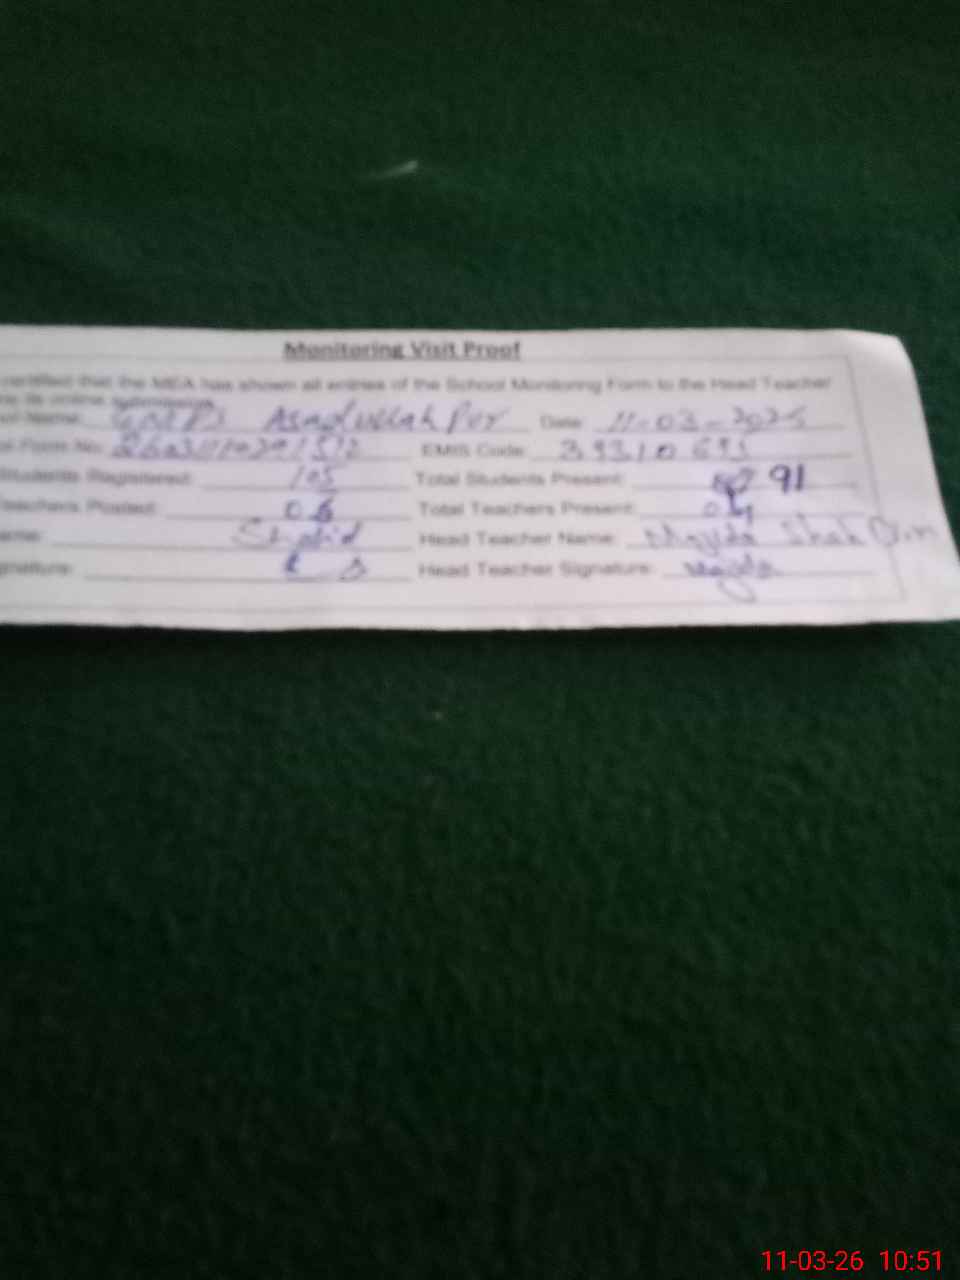 Monitoring Visit Proof
certified that the MEA has shown all entries of the School Monitoring Form to the Head Teacher
its online submission
Name: Asadullah Pur Date: 11-03-2026
Form No. EMIS Code: 39310695
Students Registered: 105 Total Students Present: 91
Teachers Posted: 06 Total Teachers Present: 04
Shahid Head Teacher Name: Majida Shah Din
Head Teacher Signature: Majida
11-03-26 10:51